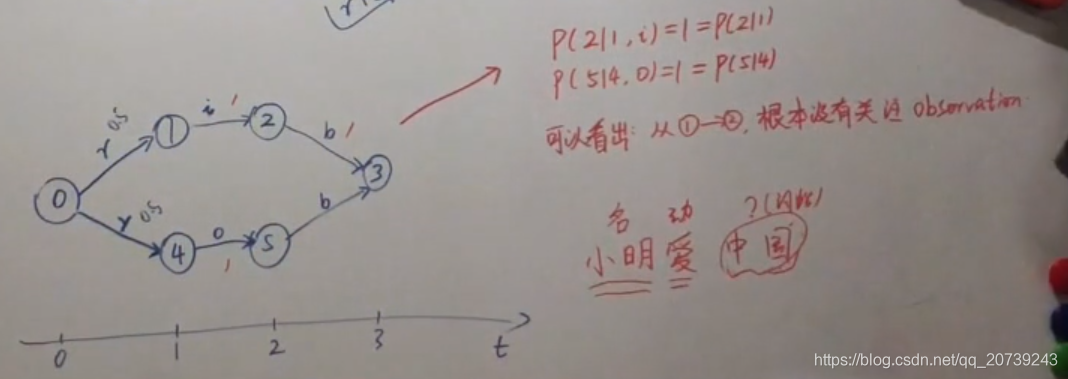 P(2|1, i)=1=P(2|1)
P(5|4, 0)=1=P(5|4)
可以看出: 从①→②, 根本没有关注 observation.
r 0.5
①
i 1
②
b 1
0
3
r 0.5
4
o
1
5
b
名 动
小明 爱 中国
0 1 2 3 t
https://blog.csdn.net/qq_20739243